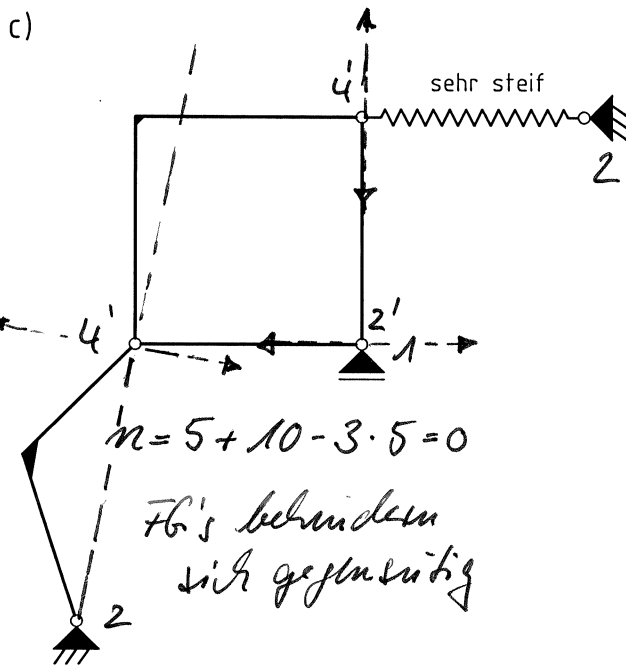 c)
1
4'
sehr steif
2
4'
2'
1
n = 5 + 10 - 3 · 5 = 0
FG's behindern
sich gegenseitig
2